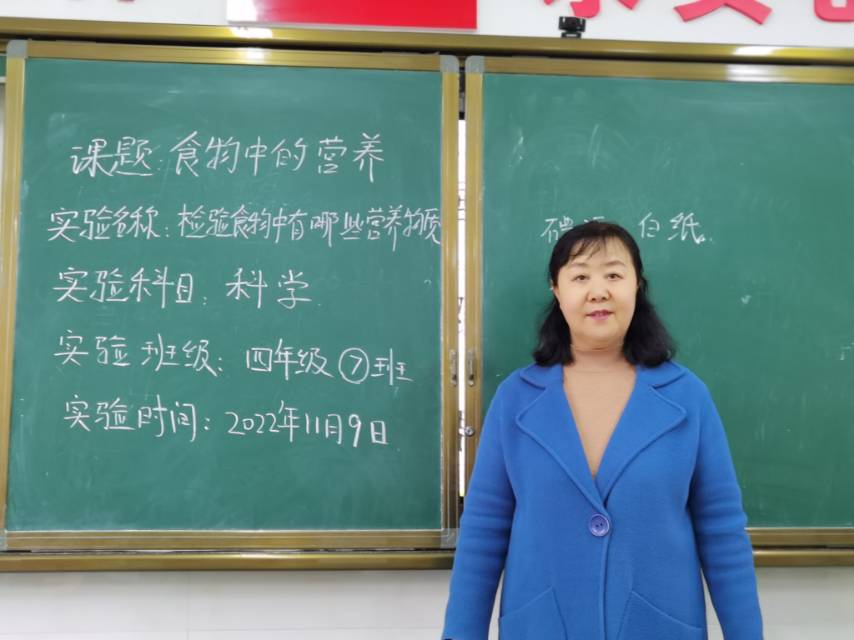 课题:食物中的营养
实验名称:检验食物中有哪些营养物质
实验科目:科学
实验班级:四年级⑦班
实验时间:2022年11月9日
白纸.